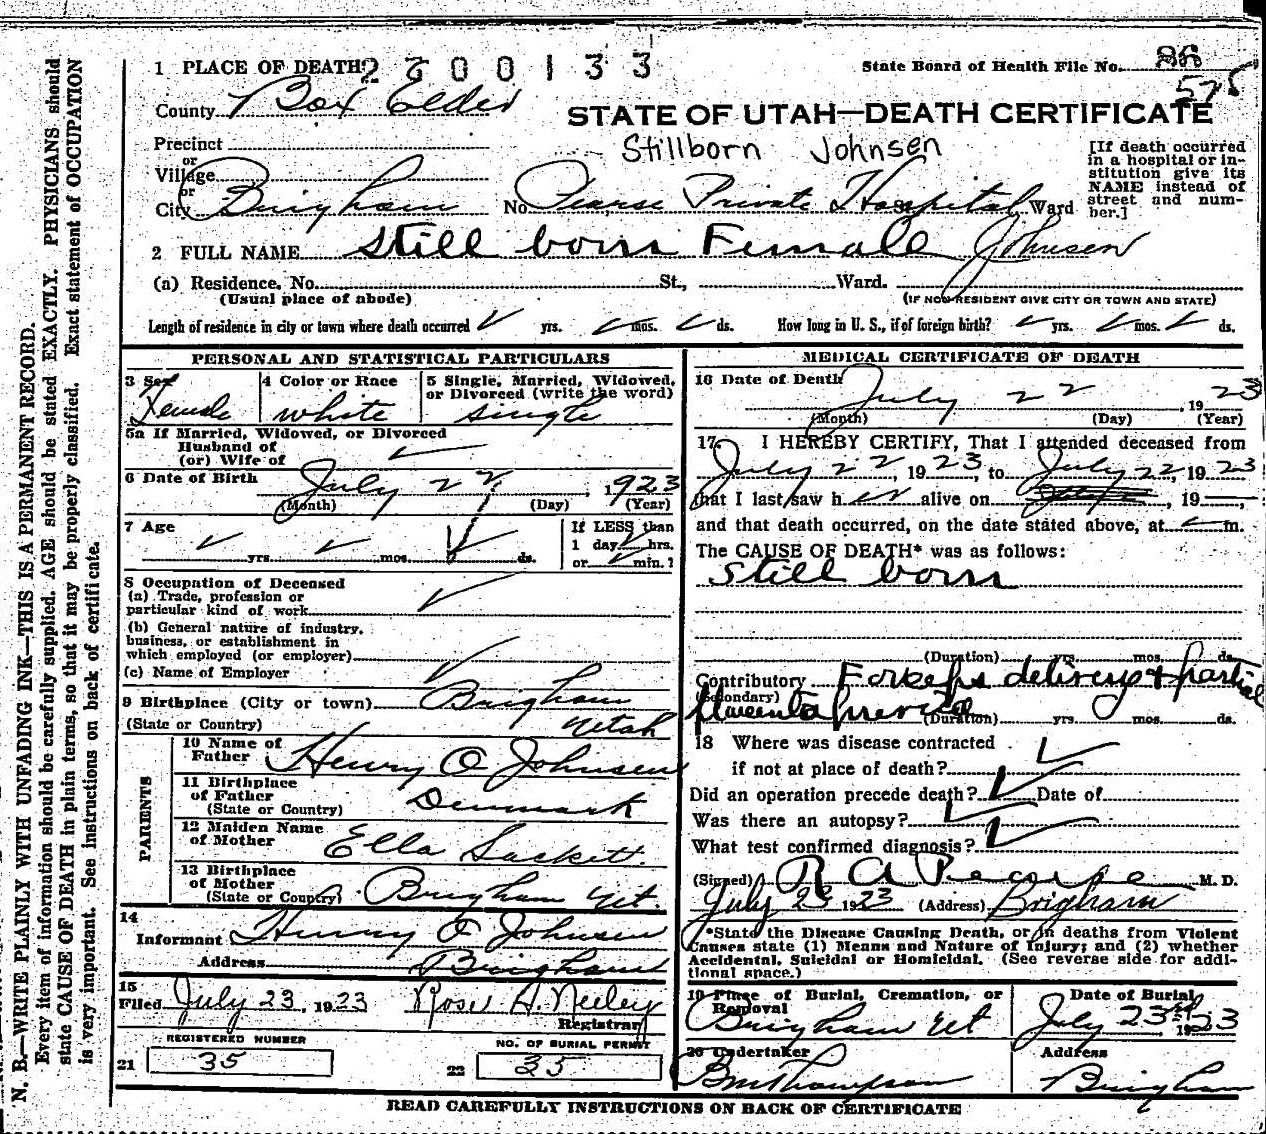 1 PLACE OF DEATH 2300133
State Board of Health File No. 86
575
County Box Elder
STATE OF UTAH—DEATH CERTIFICATE
Stillborn Johnsen
Precinct
or
Village
or
City Brigham No. Pearse Private Hospital St., Ward
[If death occurred in a hospital or in-
stitution give its
NAME instead of
street and num-
ber.]
2 FULL NAME still born Female Johnsen
(a) Residence. No. St., Ward.
(Usual place of abode) (IF NON-RESIDENT GIVE CITY OR TOWN AND STATE)
Length of residence in city or town where death occurred ✓ yrs. ✓ mos. ✓ ds. How long in U. S., if of foreign birth? ✓ yrs. ✓ mos. ✓ ds.
PERSONAL AND STATISTICAL PARTICULARS
3 Sex Female
4 Color or Race white
5 Single, Married, Widowed,
or Divorced (write the word) single
5a If Married, Widowed, or Divorced
Husband of
(or) Wife of ✓
6 Date of Birth July 22, 1923
(Month) (Day) (Year)
7 Age ✓ yrs. ✓ mos. ✓ ds.
If LESS than
1 day ✓ hrs.
or ✓ min.?
8 Occupation of Deceased
(a) Trade, profession or
particular kind of work ✓
(b) General nature of industry,
business, or establishment in
which employed (or employer)
(c) Name of Employer ✓
9 Birthplace (City or town) Brigham
(State or Country) Utah
PARENTS
10 Name of
Father Henry O Johnsen
11 Birthplace
of Father
(State or Country) Denmark
12 Maiden Name
of Mother Ella Sackett.
13 Birthplace
of Mother
(State or Country) Brigham Ut.
14
Informant Henry O Johnsen
Address Brigham
15
Filed July 23, 1923 Rose H. Neeley
Registrar
REGISTERED NUMBER
21 35
NO. OF BURIAL PERMIT
22 35
MEDICAL CERTIFICATE OF DEATH
16 Date of Death July 22, 1923
(Month) (Day) (Year)
17 I HEREBY CERTIFY, That I attended deceased from
July 22, 1923, to July 22, 1923
that I last saw her alive on , 19 ,
and that death occurred, on the date stated above, at m.
The CAUSE OF DEATH* was as follows:
still born
(Duration) yrs. mos. ds.
Contributory Forkeps delivery & partial
(Secondary)
placenta previa
(Duration) yrs. mos. ds.
18 Where was disease contracted
if not at place of death? ✓
Did an operation precede death? ✓ Date of
Was there an autopsy? ✓
What test confirmed diagnosis? ✓
(Signed) R A Pearse M. D.
July 23 1923 (Address) Brigham
*State the Disease Causing Death, or in deaths from Violent
Causes state (1) Means and Nature of Injury; and (2) whether
Accidental, Suicidal or Homicidal. (See reverse side for addi-
tional space.)
19 Place of Burial, Cremation, or
Removal
Brigham Ut
Date of Burial
July 23rd 1923
20 Undertaker
Address
Thompson Brigham
READ CAREFULLY INSTRUCTIONS ON BACK OF CERTIFICATE
N. B.—WRITE PLAINLY WITH UNFADING INK—THIS IS A PERMANENT RECORD.
Every item of information should be carefully supplied. AGE should be stated EXACTLY. PHYSICIANS should
state CAUSE OF DEATH in plain terms, so that it may be properly classified. Exact statement of OCCUPATION
is very important. See instructions on back of certificate.